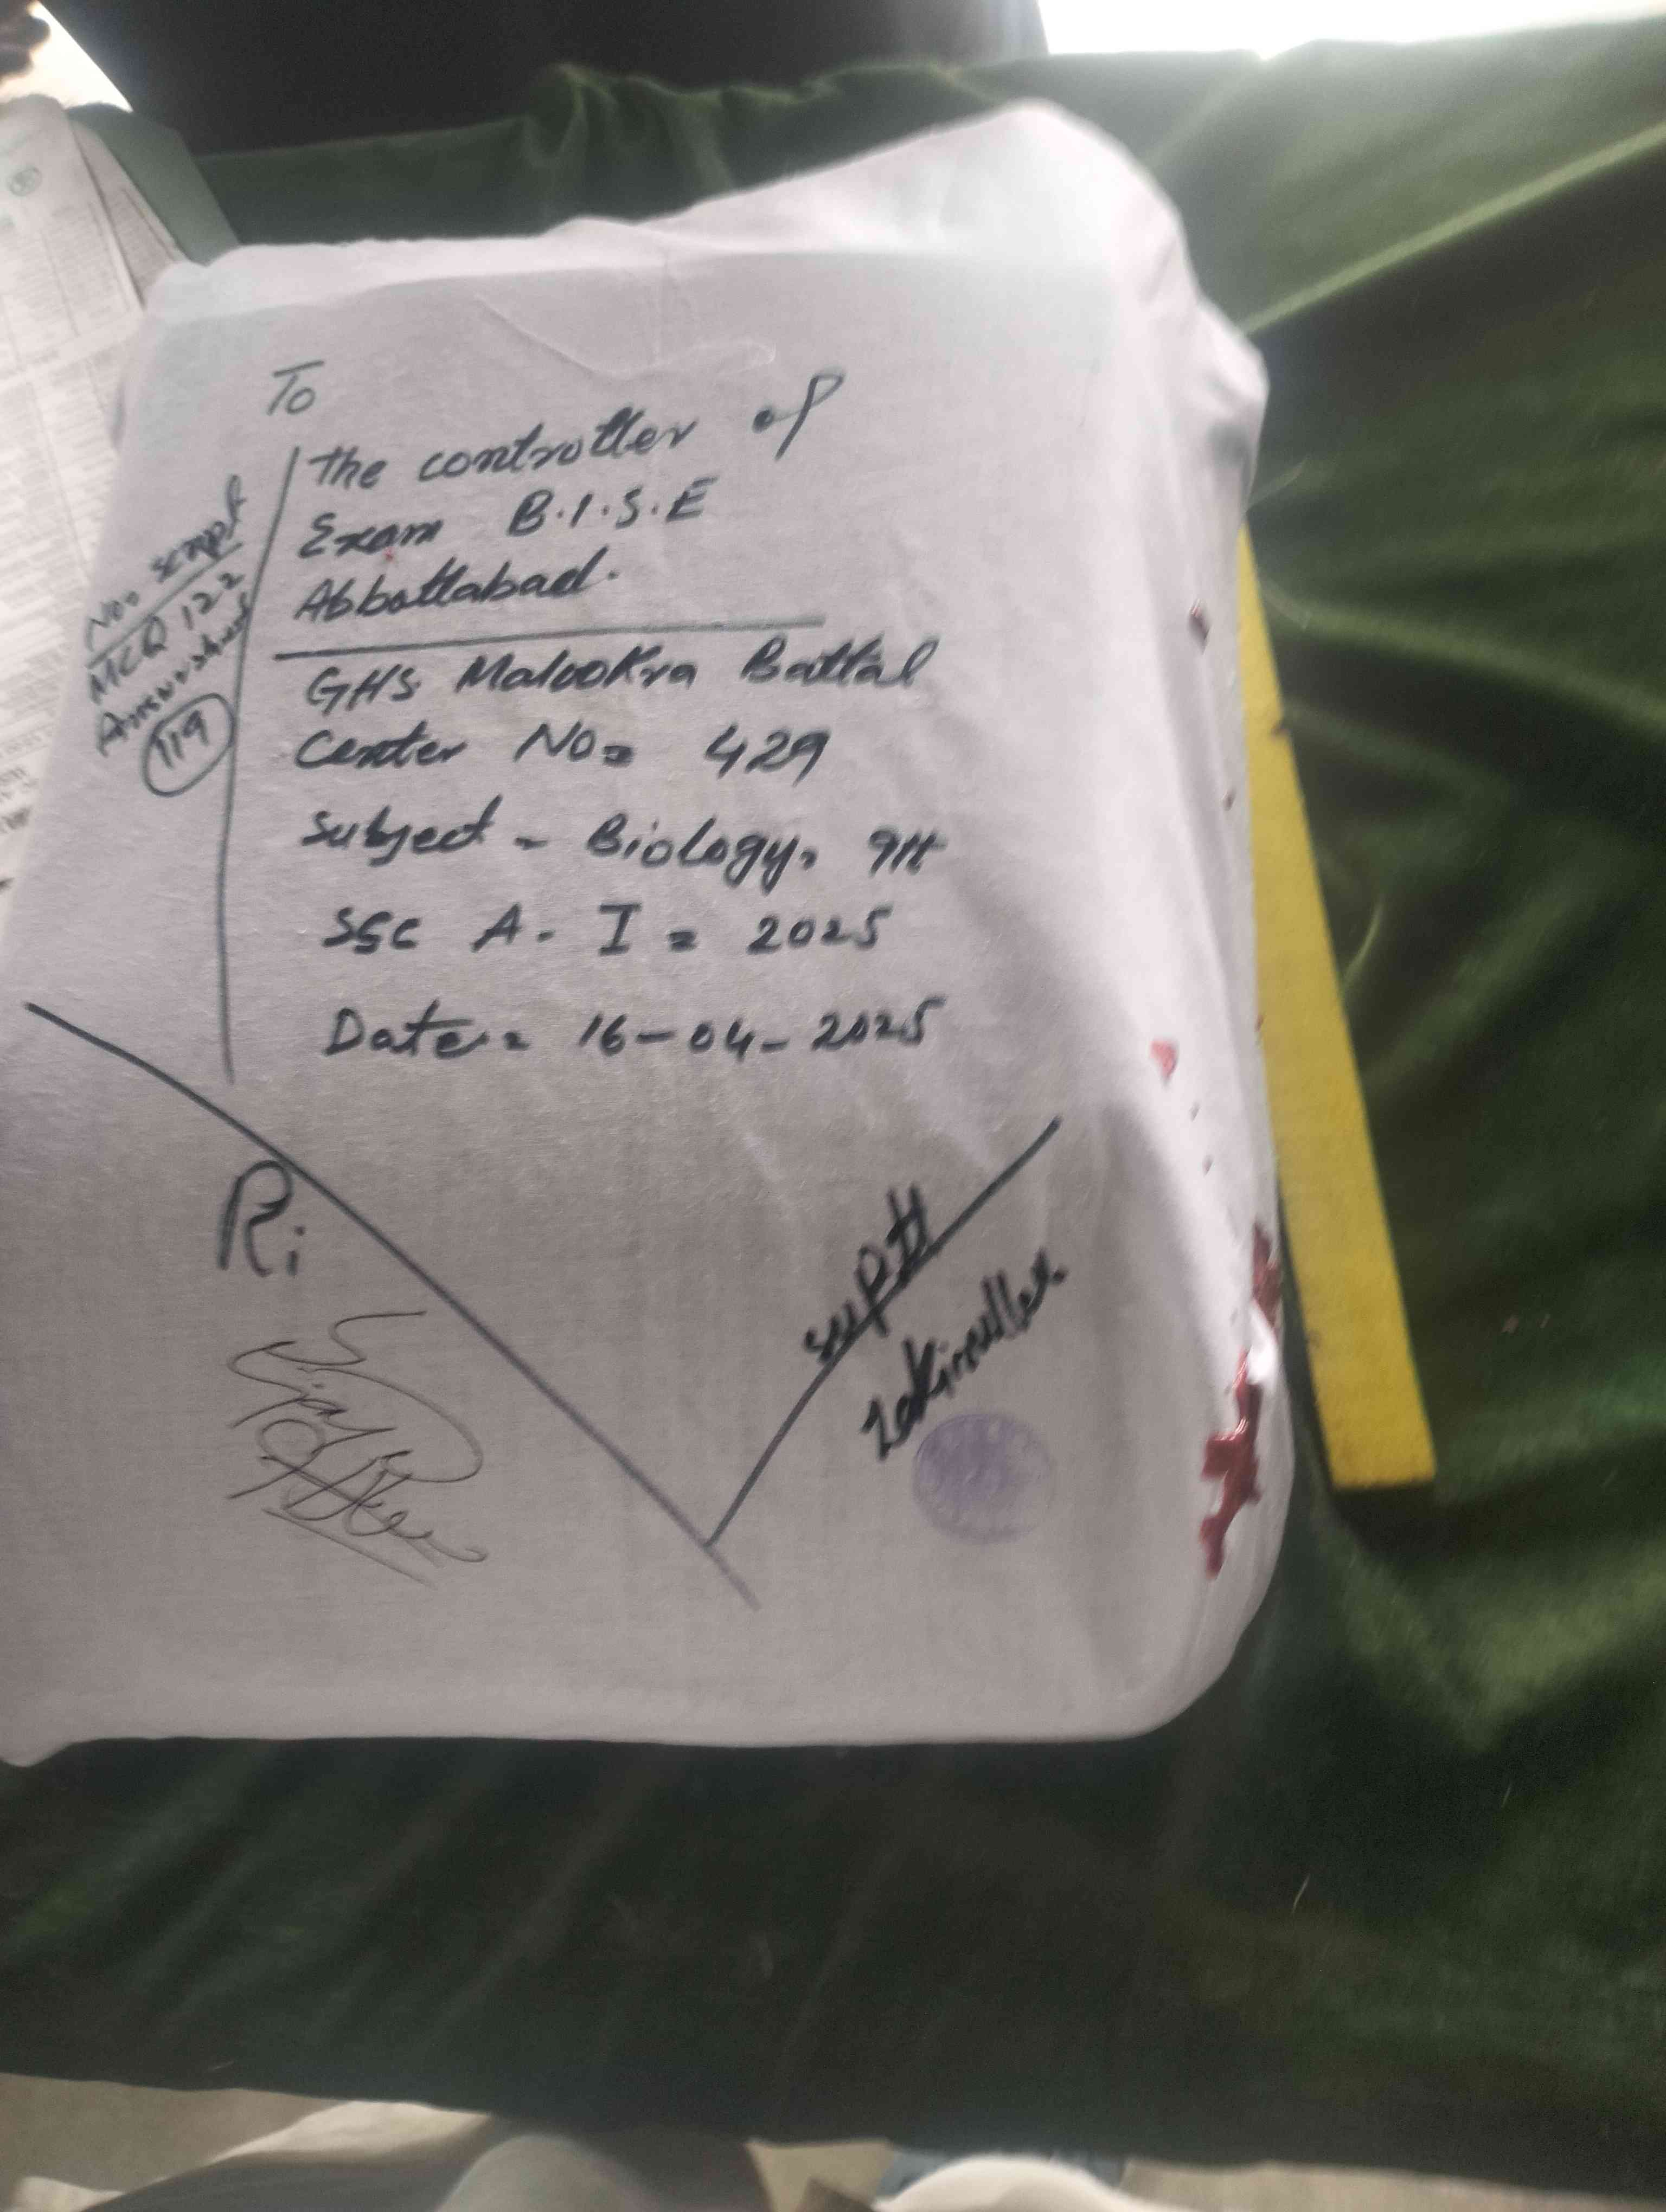 To
the controller of
Exam B.I.S.E
Abbottabad.
No= script
MCQ 122
Answersheet
119
GHS. Malookra Battal
Center No= 429
Subject - Biology, 9th
SSC A. I = 2025
Date = 16-04-2025
Ri
Suptt
Zakirullah